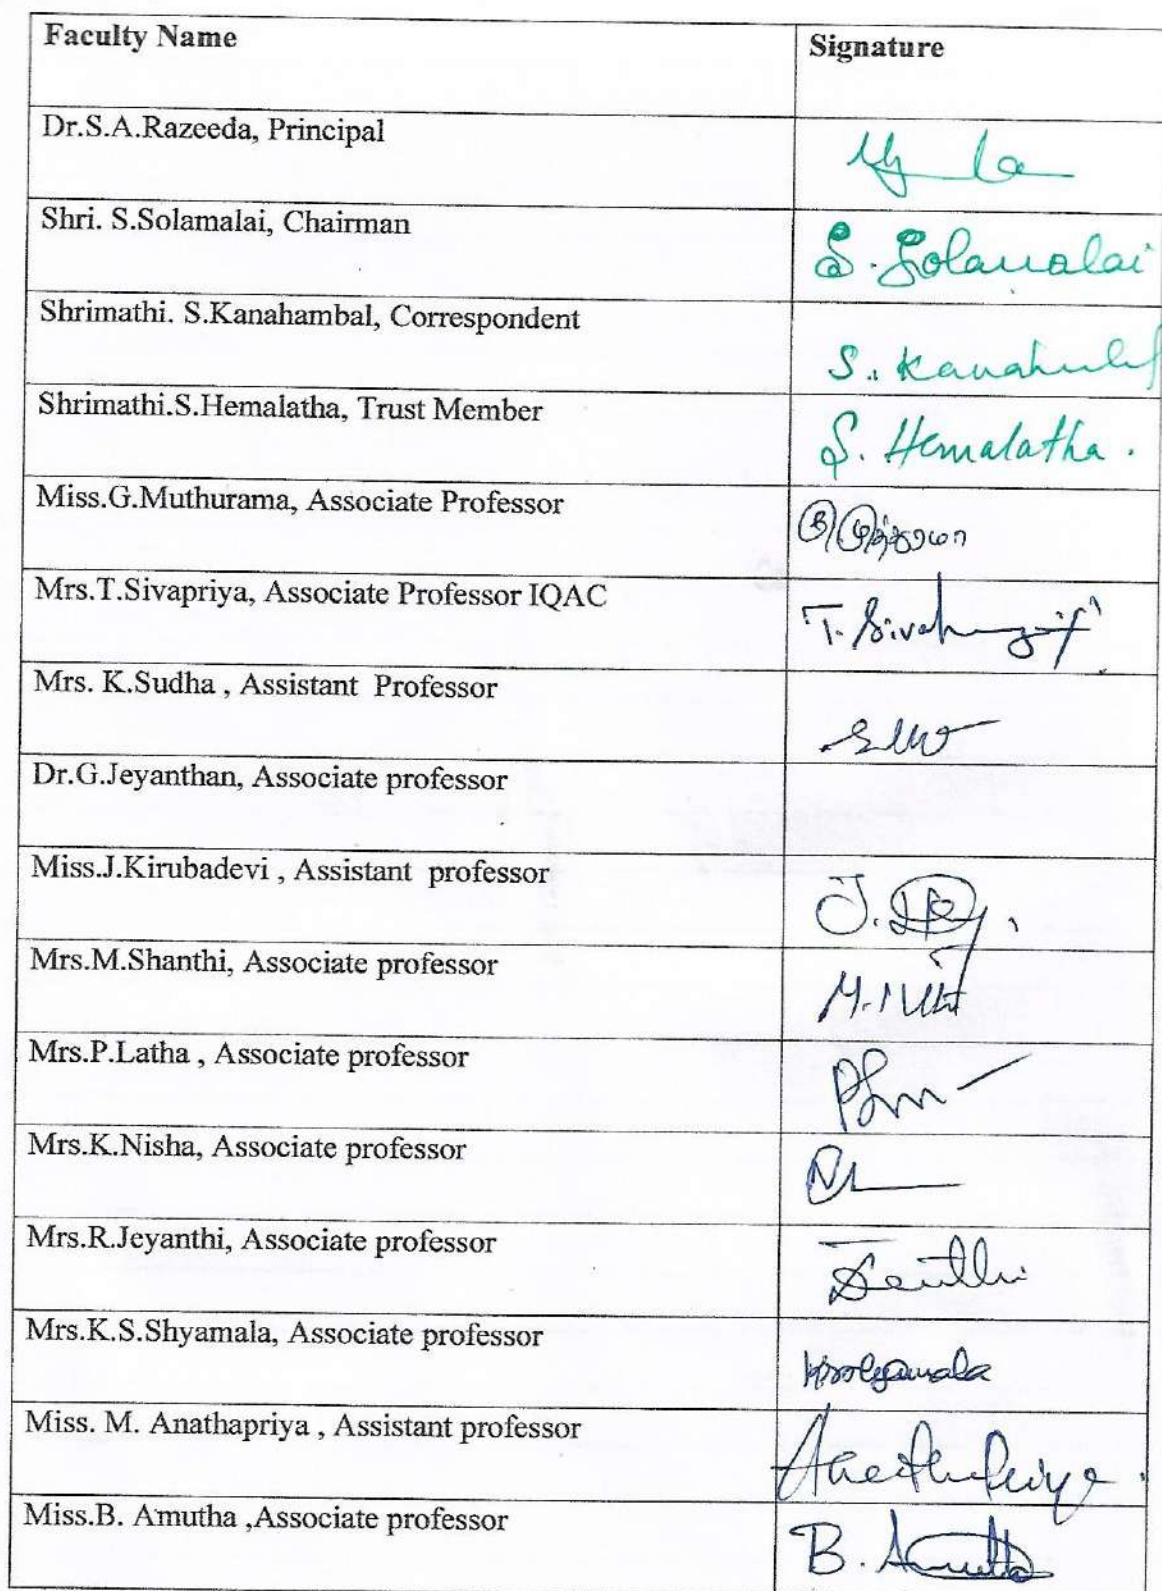 Faculty Name Signature
Dr.S.A.Razeeda, Principal
Shri. S.Solamalai, Chairman S. Solamalai
Shrimathi. S.Kanahambal, Correspondent
Shrimathi.S.Hemalatha, Trust Member S. Hemalatha.
Miss.G.Muthurama, Associate Professor
Mrs.T.Sivapriya, Associate Professor IQAC
Mrs. K.Sudha , Assistant Professor
Dr.G.Jeyanthan, Associate professor
Miss.J.Kirubadevi , Assistant professor
Mrs.M.Shanthi, Associate professor
Mrs.P.Latha , Associate professor
Mrs.K.Nisha, Associate professor
Mrs.R.Jeyanthi, Associate professor
Mrs.K.S.Shyamala, Associate professor
Miss. M. Anathapriya , Assistant professor
Miss.B. Amutha ,Associate professor B. Amutha